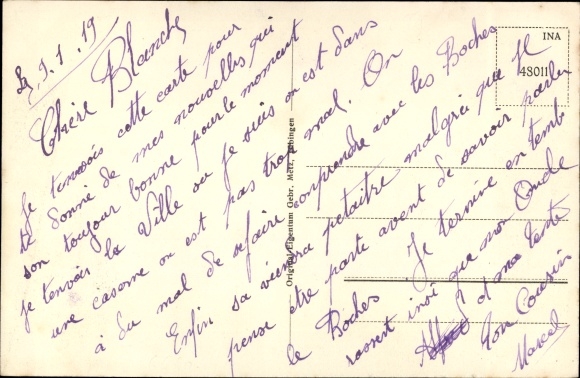 Le 9.1.19
Chère Blanche
Je t'envois cette carte pour
te donné de mes nouvelles qui
son toujour bonne pour le moment
je t'envois la Ville ou je suis on est dans
une caserne on est pas trop mal. On
à du mal de se faire comprendre avec les Boches
Enfin sa viendra petaitre malgrée que Il
pense etre parti avent de savoir parler
le Boches Je termine en temb
rassent insi que mon Oncle
et ma tente
Ton Cousin
Marcel
INA
48011
Original-Eigentum Gebr. Metz, Tübingen